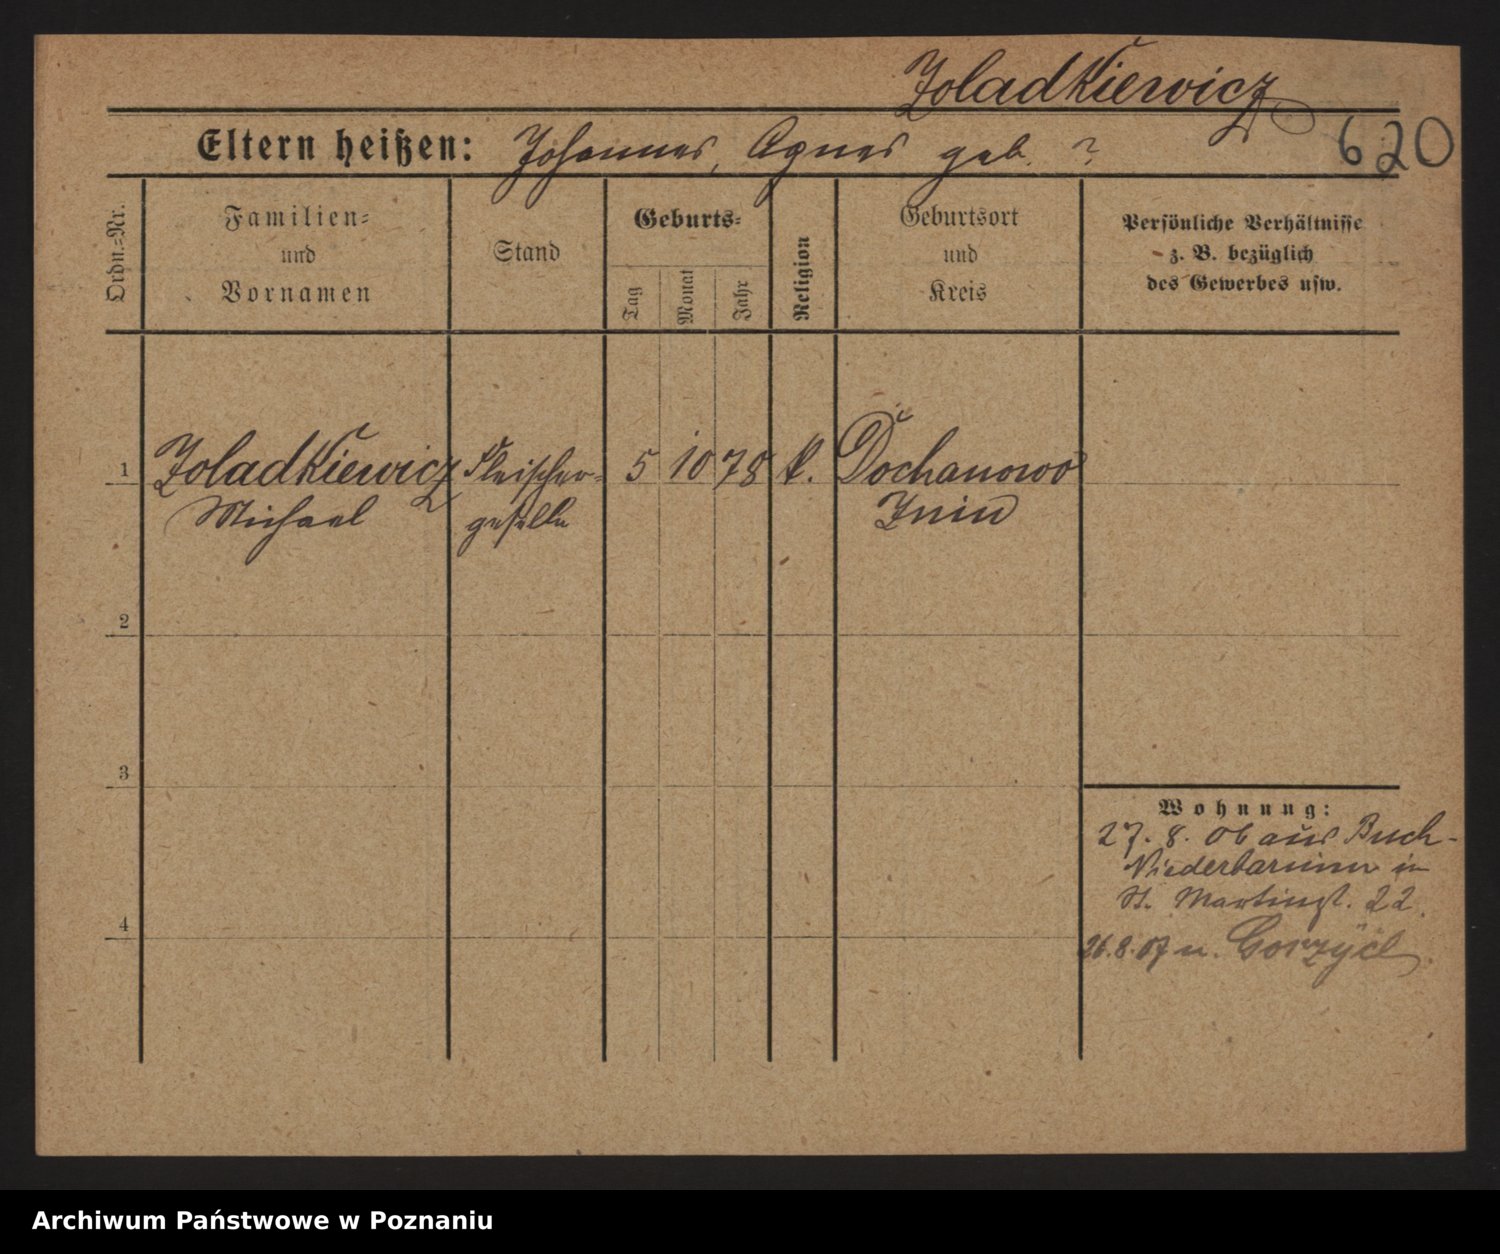 Zoladkiewicz
Eltern heißen: Johannes, Agnes geb. ?
620
Ordn.-Nr.
Familien-
und
Vornamen
Stand
Geburts-
Tag
Monat
Jahr
Religion
Geburtsort
und
Kreis
Persönliche Verhältnisse
z. B. bezüglich
des Gewerbes usw.
1 Zoladkiewicz Fleischer- 5 10 78 k. Dochanowo
Michael geselle Znin
2
3
4
Wohnung:
27. 8. 06 aus Buch-
Niederbarnim in
St. Martinst. 22.
26.8.07 n.
Archiwum Państwowe w Poznaniu